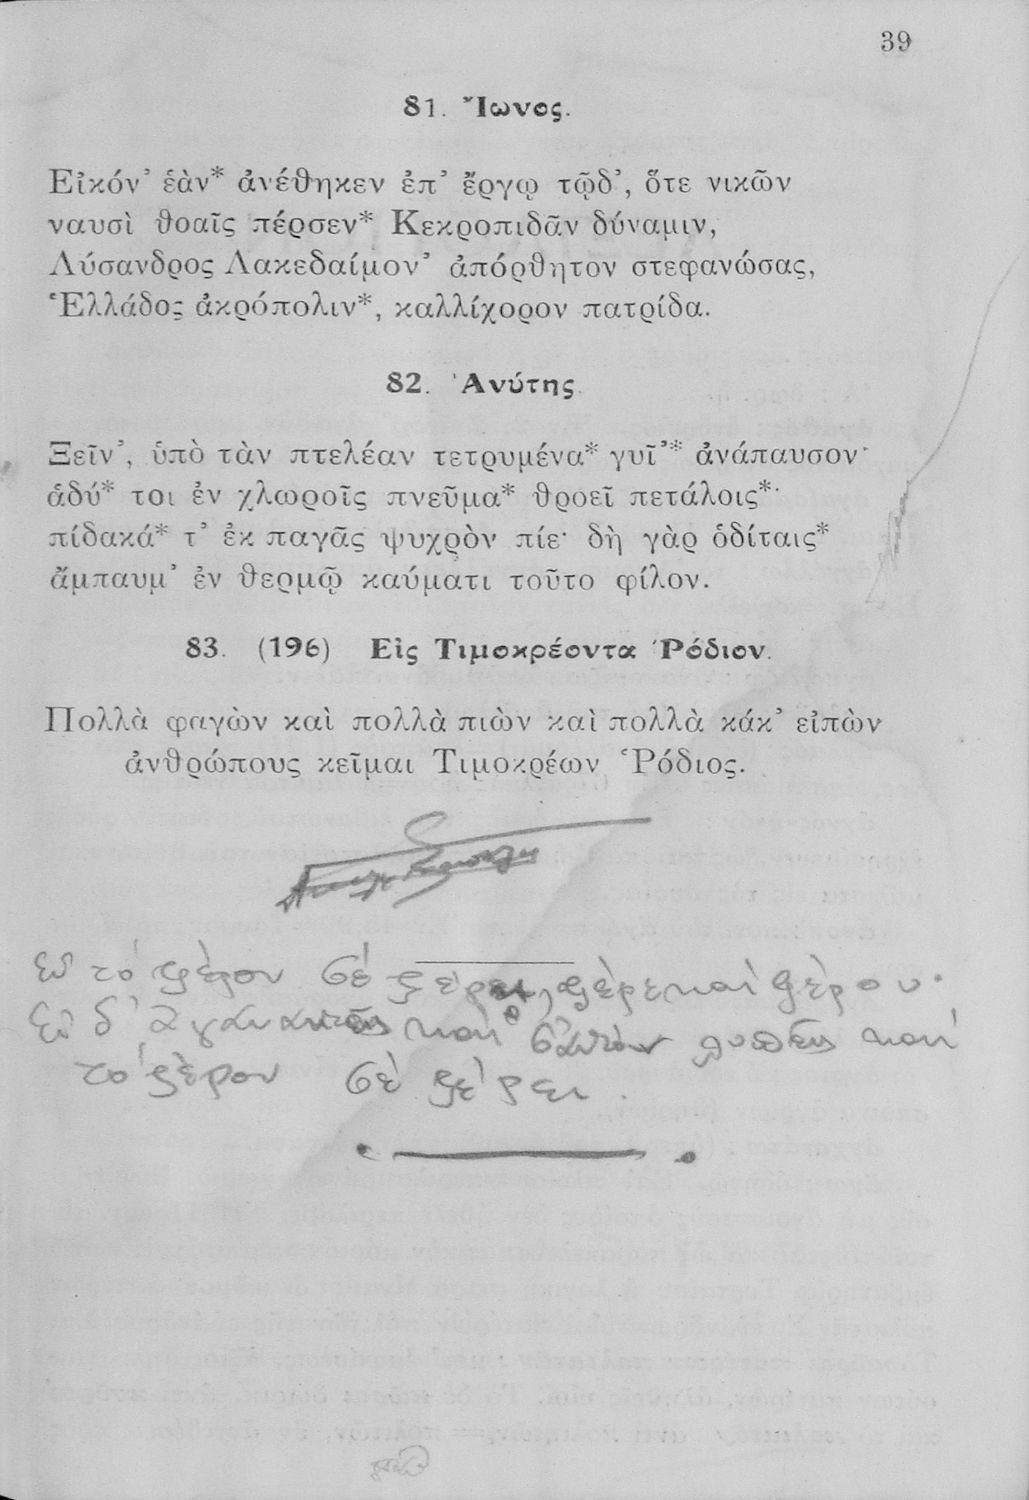 39
81. Ἴωνος.
Εἰκόν' ἑὰν* ἀνέθηκεν ἐπ' ἔργῳ τῷδ', ὅτε νικῶν
ναυσὶ θοαῖς πέρσεν* Κεκροπιδᾶν δύναμιν,
Λύσανδρος Λακεδαίμον' ἀπόρθητον στεφανώσας,
Ἑλλάδος ἀκρόπολιν*, καλλίχορον πατρίδα.
82. Ἀνύτης.
Ξεῖν', ὑπὸ τὰν πτελέαν τετρυμένα* γυῖ'* ἀνάπαυσον·
ἁδύ* τοι ἐν χλωροῖς πνεῦμα* θροεῖ πετάλοις*·
πίδακά* τ' ἐκ παγᾶς ψυχρὸν πίε· δὴ γὰρ ὁδίταις*
ἄμπαυμ' ἐν θερμῷ καύματι τοῦτο φίλον.
83. (196) Εἰς Τιμοκρέοντα Ῥόδιον.
Πολλὰ φαγὼν καὶ πολλὰ πιὼν καὶ πολλὰ κάκ' εἰπὼν
ἀνθρώπους κεῖμαι Τιμοκρέων Ῥόδιος.
Εἰ τό φέρον σέ φέρει, φέρε καί φέρου·
Εἰ δ' ἀγανακτεῖς καί σαυτόν λυπεῖς καί
τό φέρον σέ φέρει.